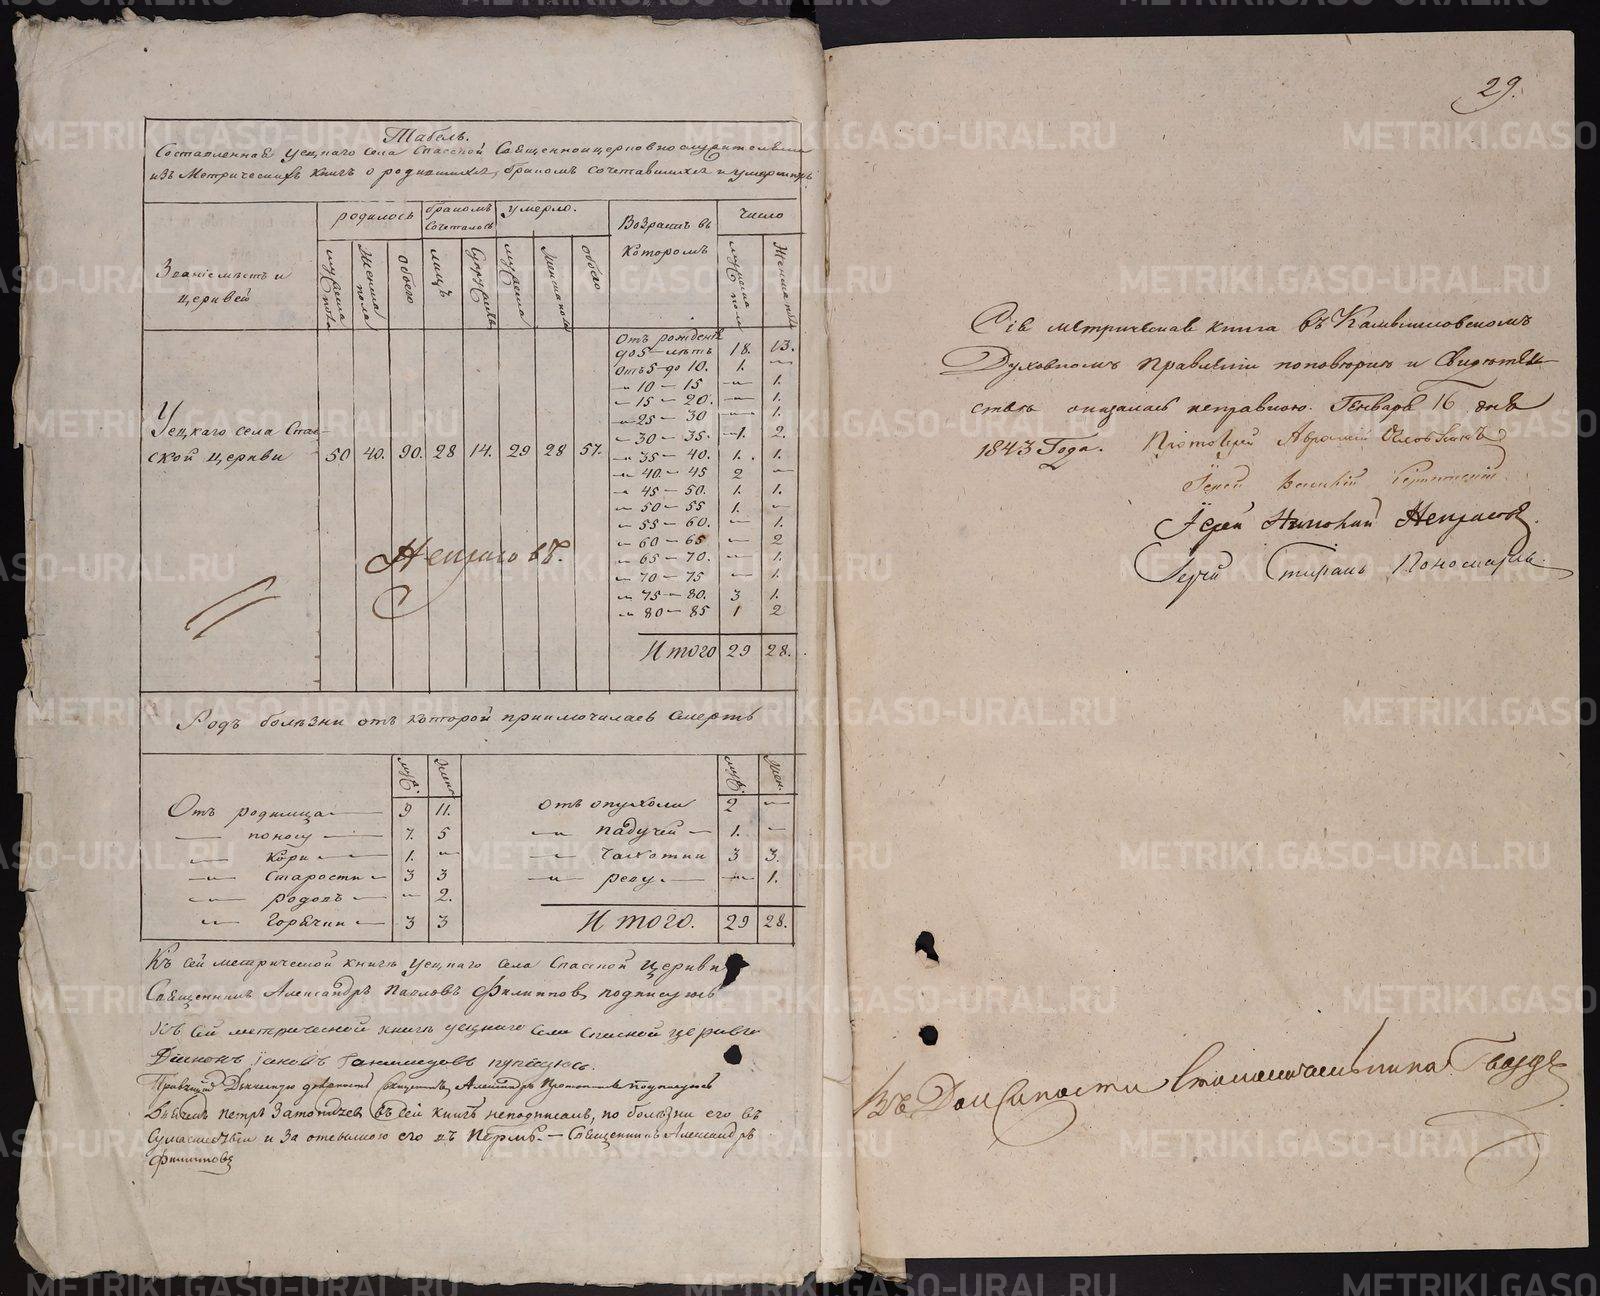 29.
Табель.
Составленная Уецкаго села Спасской Священноцерковнослужителями
изъ Метрическихъ книгъ о родившихся, бракомъ сочетавшихся и умершихъ
Званіе мѣстъ и церквей
родилось
мужеска пола
Женска пола
Обоего
бракомъ сочеталось
лицъ
Супружествъ
умерло.
мужеска
Женска пола
Обоего
Возрастъ въ Которомъ
Число
мужеска пола
Женска пола
Уецкаго села Спас-
ской церкви 50 40. 90. 28 14. 29 28 57.
Отъ рожденія
до 5 — лѣтъ 18. 13.
Отъ 5 до 10. 1. —
— 10 — 15 — 1.
— 15 — 20. — 1.
— 25 — 30 — 1.
— 30 — 35. 1. 2.
— 35 — 40. 1. 1.
— 40 — 45 2 —
— 45 — 50. 1. 1.
— 50 — 55 1. —
— 55 — 60. — 1.
— 60 — 65 — 2
— 65 — 70. — 1.
— 70 — 75 — 1.
— 75 — 80. 3 1.
— 80 — 85 1 2
Итого 29 28.
Некрасовъ.
Родъ болѣзни отъ которой приключилась Смерть
муж. жен. муж. жен.
Отъ родимца — 9 11.
— поносу — 7. 5
— Кори — 1. —
— Старости — 3 3
— родовъ — — 2.
— Горячки — 3 3
отъ опухоли 2 —
— падучей — 1. —
— Чахотки 3 3.
— резу — — 1.
Итого. 29 28.
Къ сей метрической книгѣ Уецкаго Села Спасской Церкви
Священникъ Александръ Павловъ Филипповъ подписуюсь
Къ сей метрической книгѣ уецкаго села Спасской церкви
Діаконъ Іаковъ
Правящій Дьячекую должность Священникъ Александръ подписуюсь
Дьячекъ Петръ въ сей книгѣ неподписалъ, по болѣзни его въ
Сумасшествіи и за отсылкою его въ Пермь. — Священникъ Александръ
Филипповъ
Сія метрическая книга въ Камышловскомъ
Духовномъ Правленіи поповѣркѣ и Свидѣтель-
ствѣ оказалась исправною. Генваря 16 дня
1843 Года. Протоіерей
Іерей
Іерей Николай Некрасовъ.
Іерей Стефанъ Пономаревъ.
METRIKI.GASO-URAL.RU